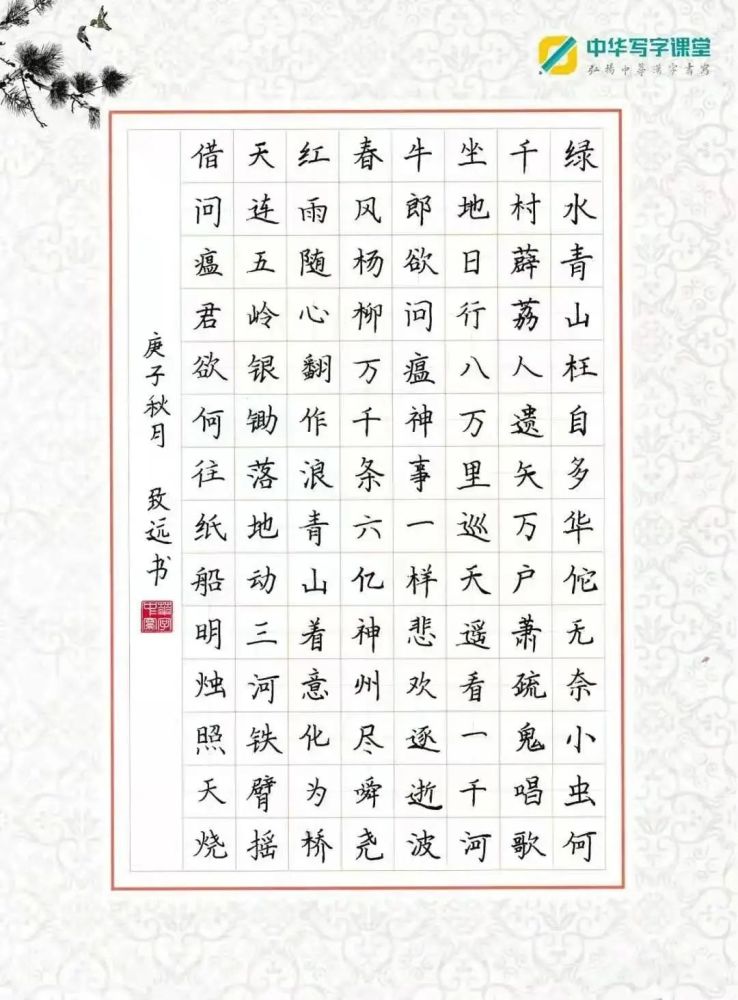 中华写字课堂
弘扬中华汉字书写
绿水青山枉自多华佗无奈小虫何
千村薜荔人遗矢万户萧疏鬼唱歌
坐地日行八万里巡天遥看一千河
牛郎欲问瘟神事一样悲欢逐逝波
春风杨柳万千条六亿神州尽舜尧
红雨随心翻作浪青山着意化为桥
天连五岭银锄落地动三河铁臂摇
借问瘟君欲何往纸船明烛照天烧
庚子秋月 致远书